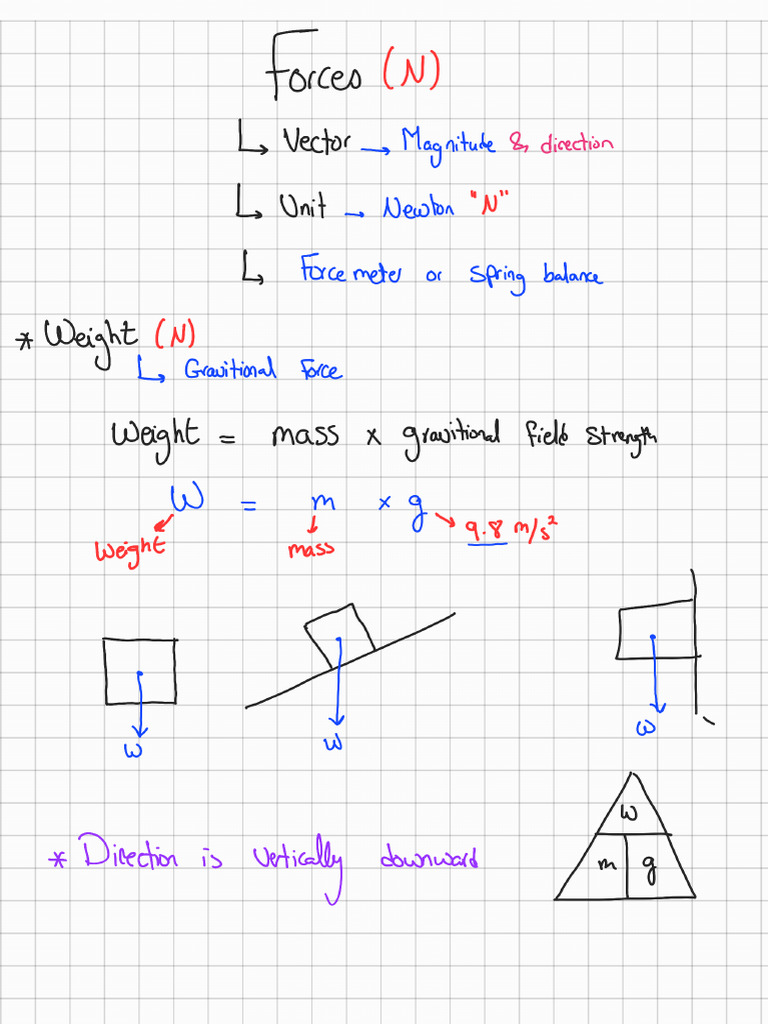 Forces (N)
Vector → Magnitude & direction
Unit → Newton "N"
Force meter or spring balance
* Weight (N)
Gravitional Force
Weight = mass × gravitional field strength
W = m × g
Weight
mass
9.8 m/s²
W
W
W
* Direction is vertically downward
W
m g